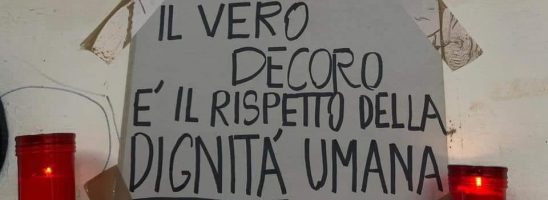 IL VERO
DECORO
E' IL RISPETTO DELLA
DIGNITÀ UMANA